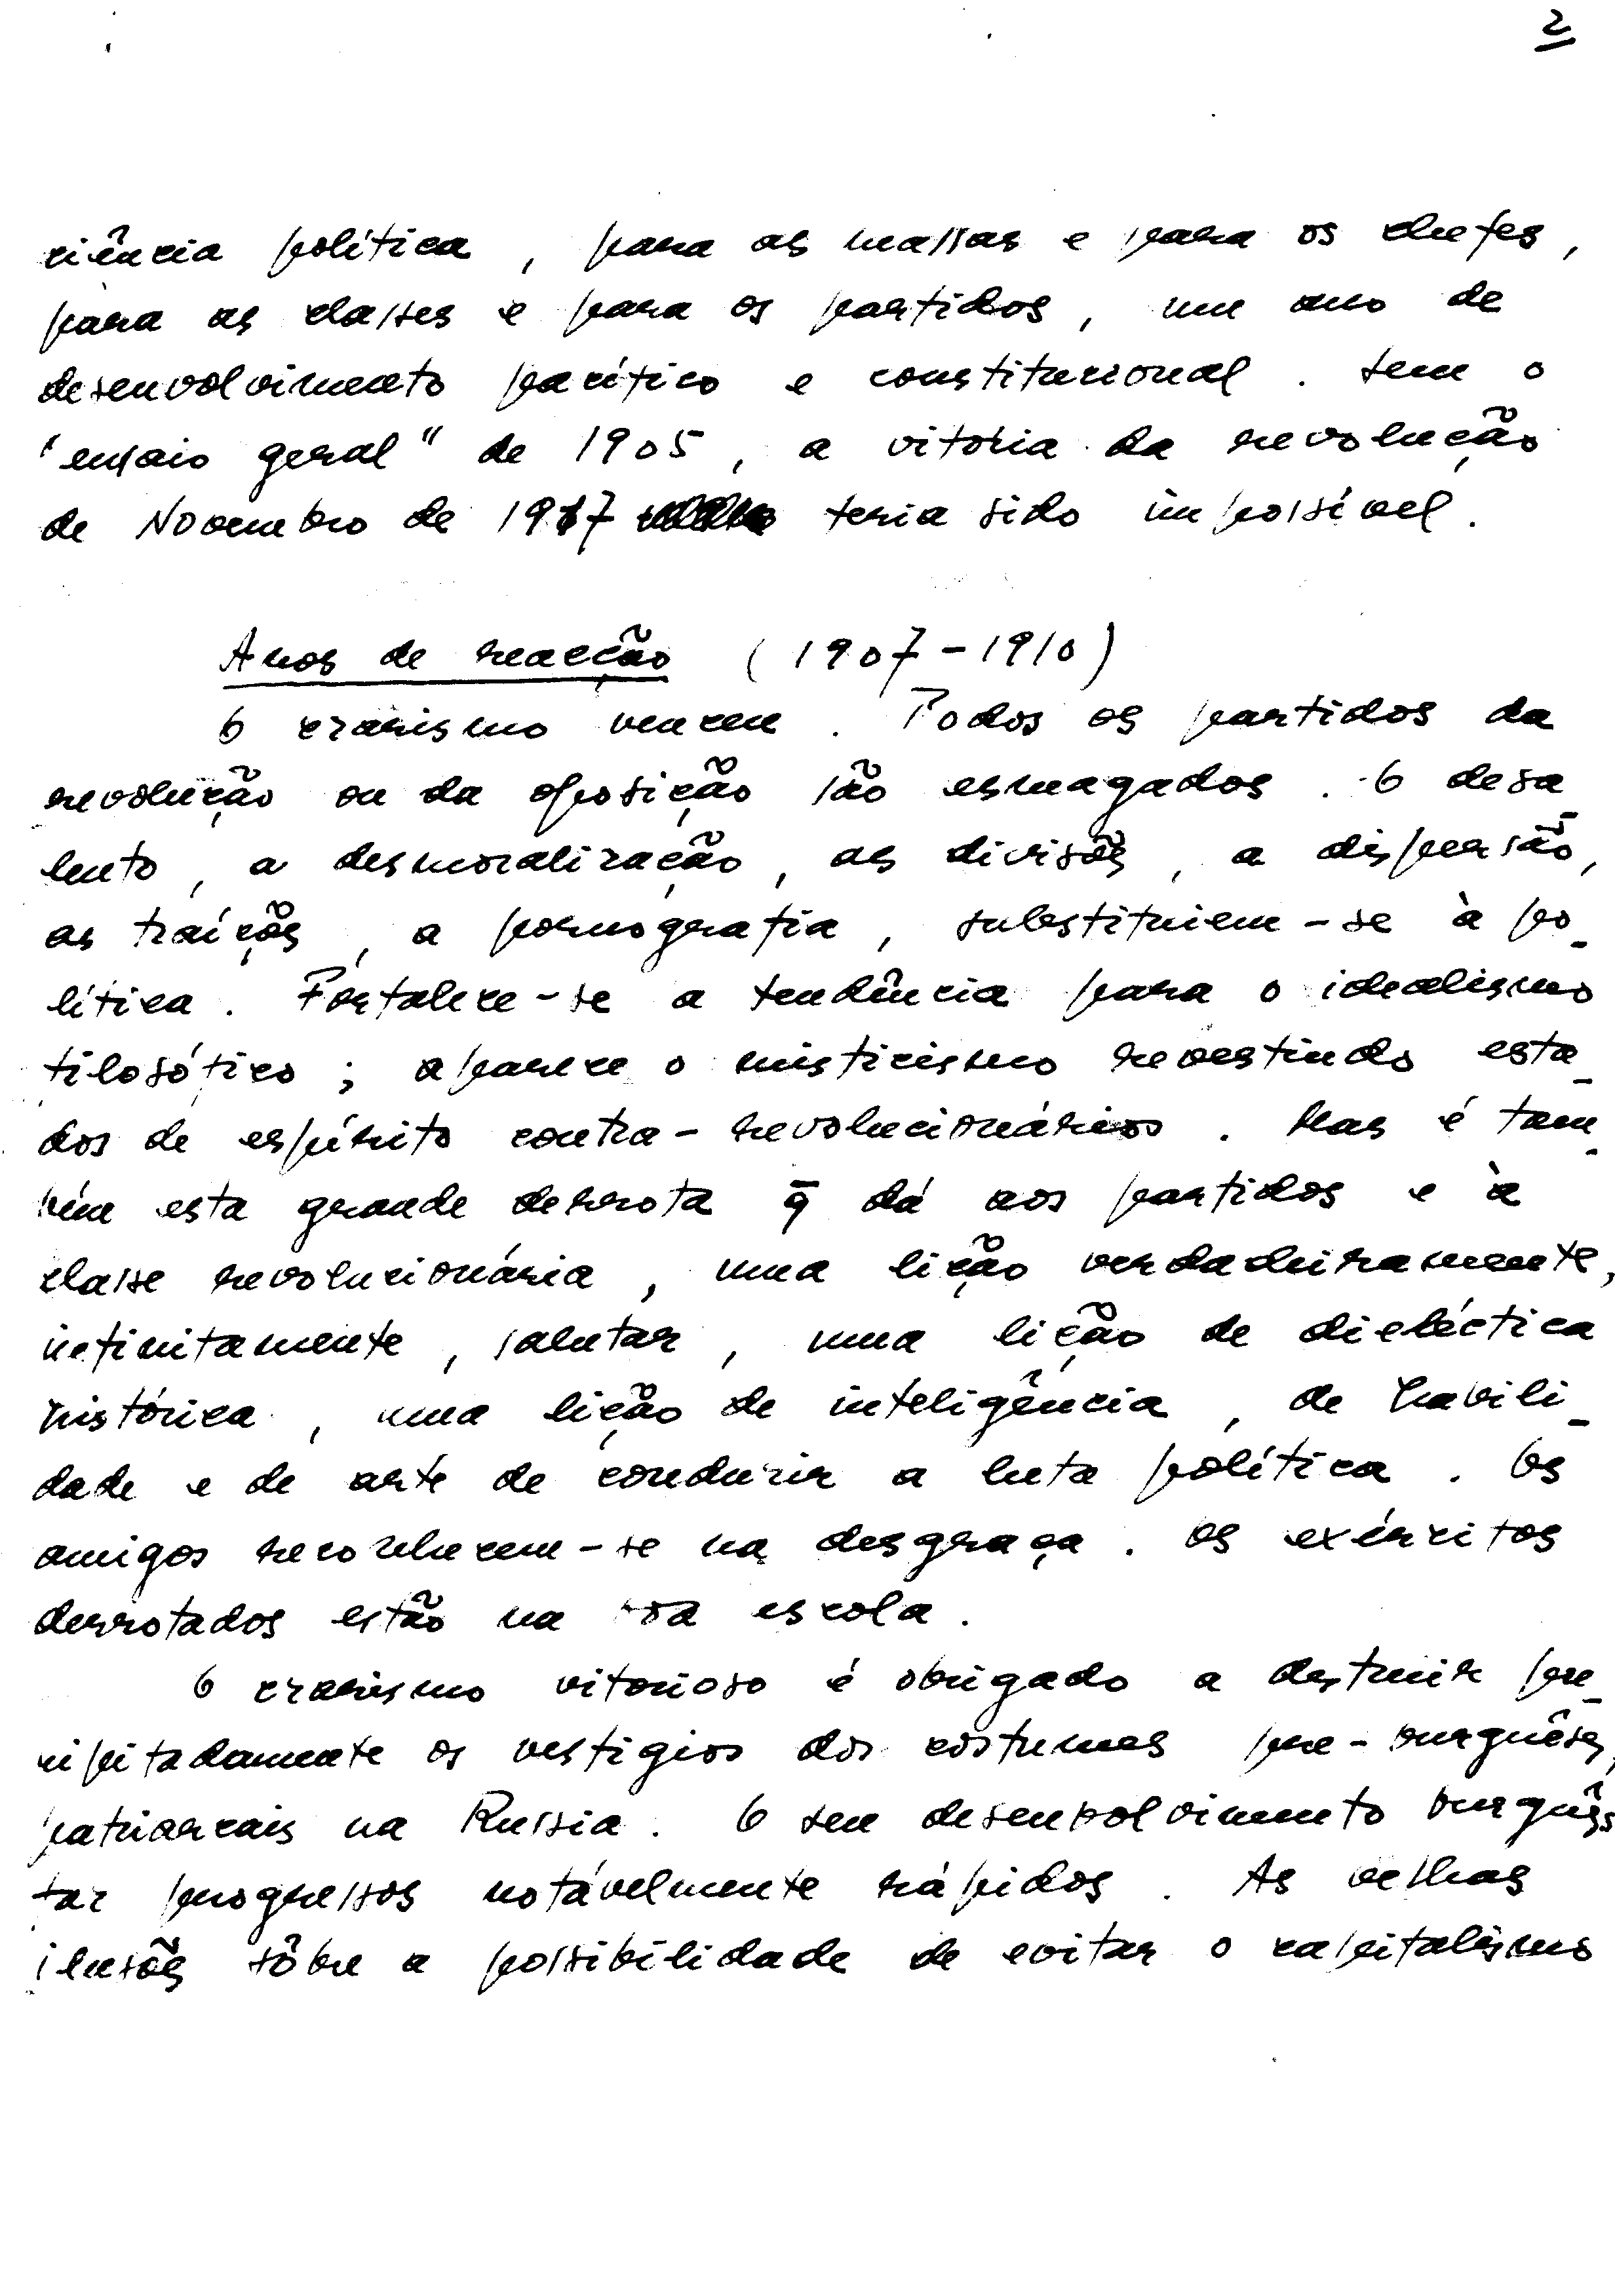 2
ciência política, para as massas e para os chefes,
para as classes e para os partidos, um ano de
desenvolvimento pacífico e constitucional. Sem o
"ensaio geral" de 1905, a vitoria da revolução
de Novembro de 1917 teria sido impossível.
Anos de reacção (1907-1910)
O czarismo venceu. Todos os partidos da
revolução ou da oposição são esmagados. O desa_
lento, a desmoralização, as divisões, a dispersão,
as traíções, a pornografia, substituiem-se à po_
lítica. Fortalece-se a tendência para o idealismo
filosófico; aparece o misticismo revestindo esta_
dos de espírito contra-revolucionários. Mas é tam_
bém esta grande derrota q̄ dá aos partidos e à
classe revolucionária, uma lição verdadeiramente,
infinitamente, salutar, uma lição de dieléctica
histórica, uma lição de inteligência, de habili_
dade e de arte de conduzir a luta política. Os
amigos reconhecem-se na desgraça. Os exércitos
derrotados estão na boa escola.
O czarismo vitorioso é obrigado a destruir pre_
cipitadamente os vestigios dos costumes pre-burguêses,
patriarcais na Russia. O seu desenvolvimento burguês
faz progressos notávelmente rápidos. As velhas
ilusões sôbre a possibilidade de evitar o capitalismo